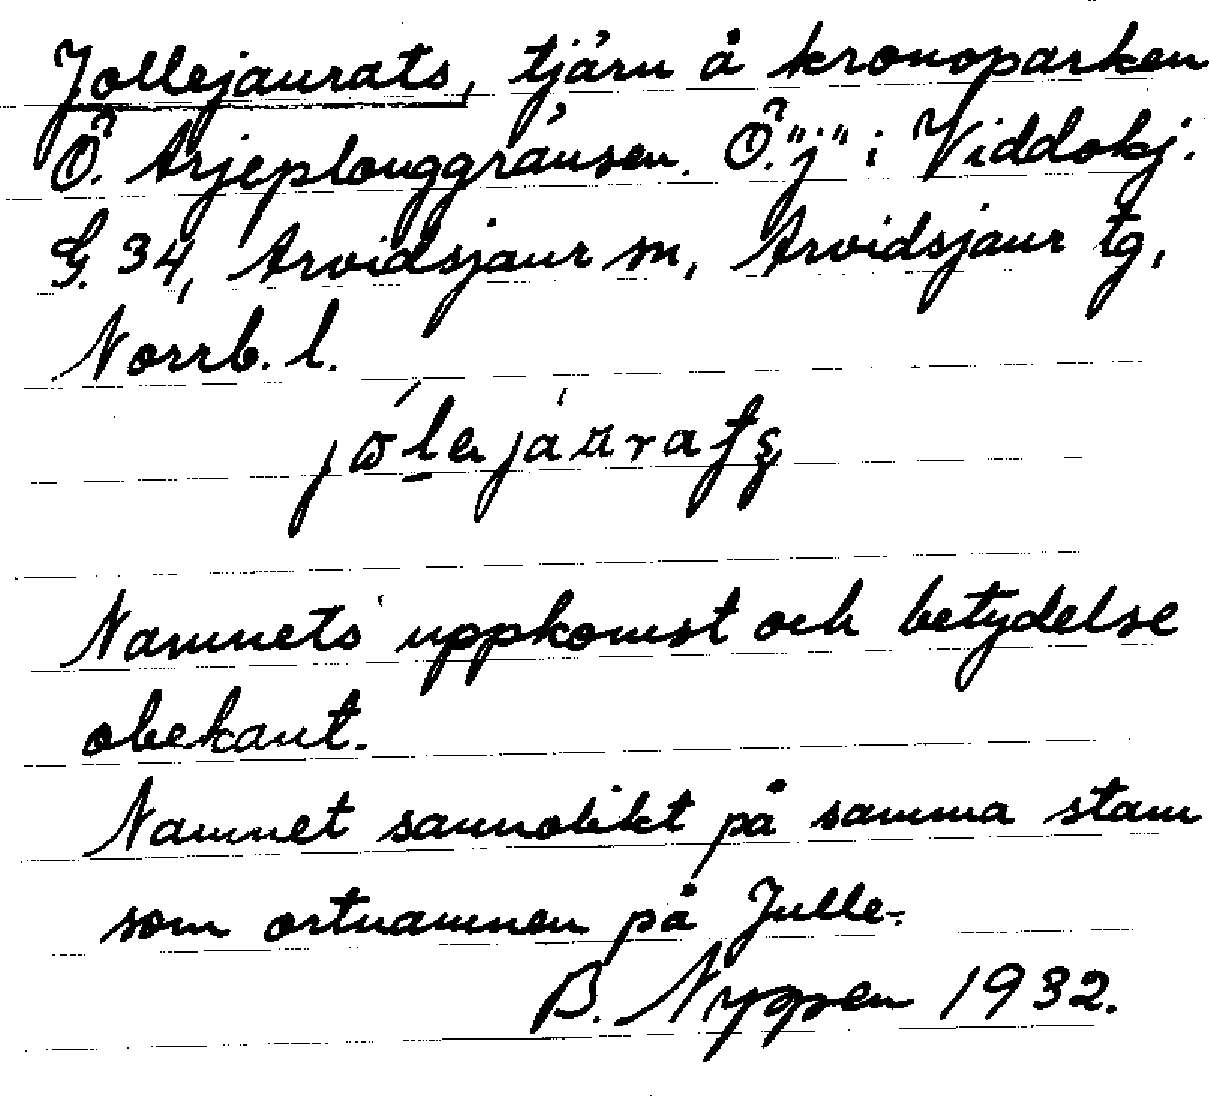 Jollejaurats, tjärn å kronoparken
Ö. Arjeplouggränsen. Ö. "j" i Viddokj.
G. 34, Arvidsjaur sn, Arvidsjaur tg,
Norrb. l.
Namnets uppkomst och betydelse
obekant.
Namnet sannolikt på samma stam
som ortnamnen på Julle-.
B. Nyppen 1932.